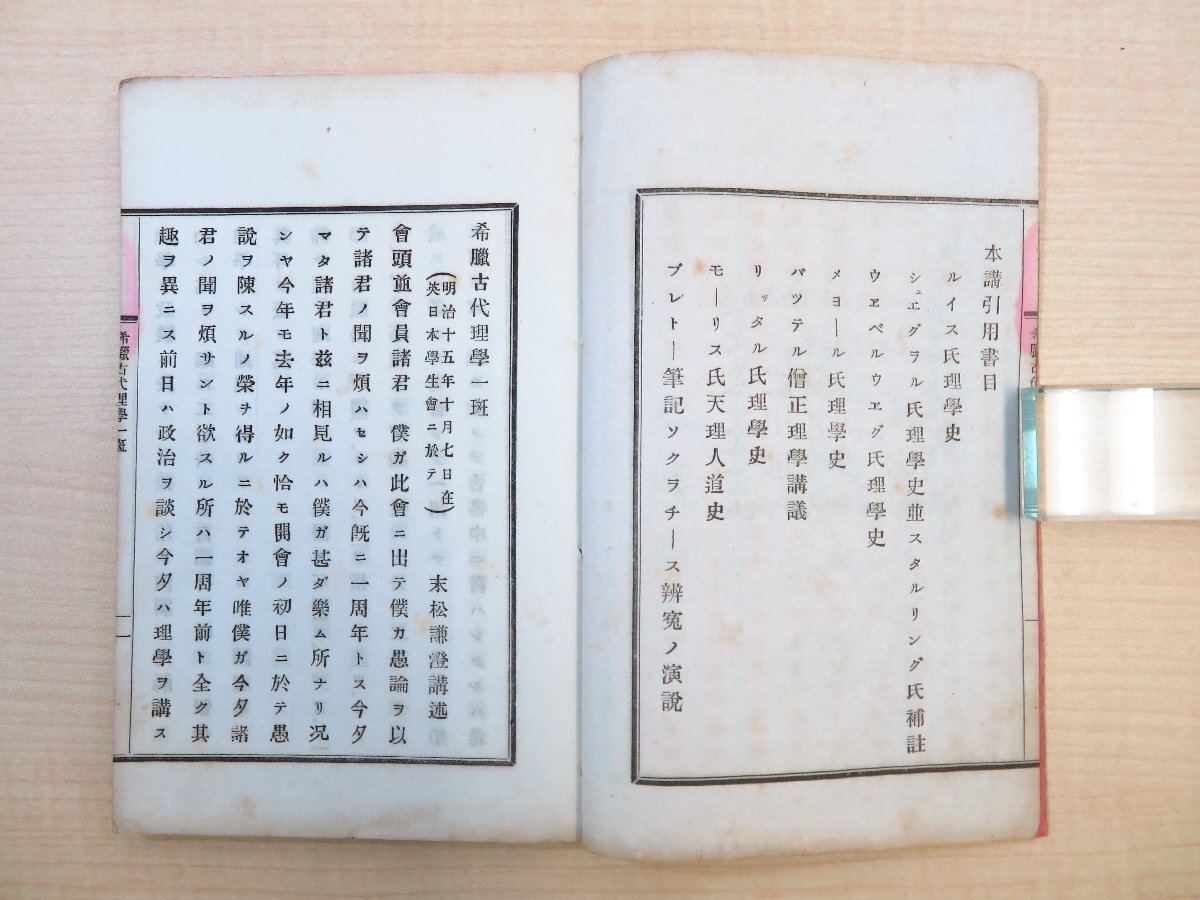 本講引用書目
ルイス氏理學史
シュエグヲル氏理學史並スタルリング氏補註
ウヱベルウヱグ氏理學史
メヨール氏理學史
バツテル僧正理學講議
リッタル氏理學史
モーリス氏天理人道史
プレトー筆記ソクラチース辨寃ノ演說
希臘古代理學一斑
(明治十五年十月七日在
英日本學生會ニ於テ) 末松謙澄講述
會頭並會員諸君 僕ガ此會ニ出テ僕カ愚論ヲ以
テ諸君ノ聞ヲ煩ハセシハ今旣ニ一周年トス今夕
マタ諸君ト茲ニ相見ルハ僕ガ甚ダ樂ム所ナリ况
ンヤ今年モ去年ノ如ク恰モ開會ノ初日ニ於テ愚
說ヲ陳スルノ榮ヲ得ルニ於テオヤ唯僕ガ今夕諸
君ノ聞ヲ煩サント欲スル所ハ一周年前ト全ク其
趣ヲ異ニス前日ハ政治ヲ談シ今夕ハ理學ヲ講ス
希臘古代理學一斑
一